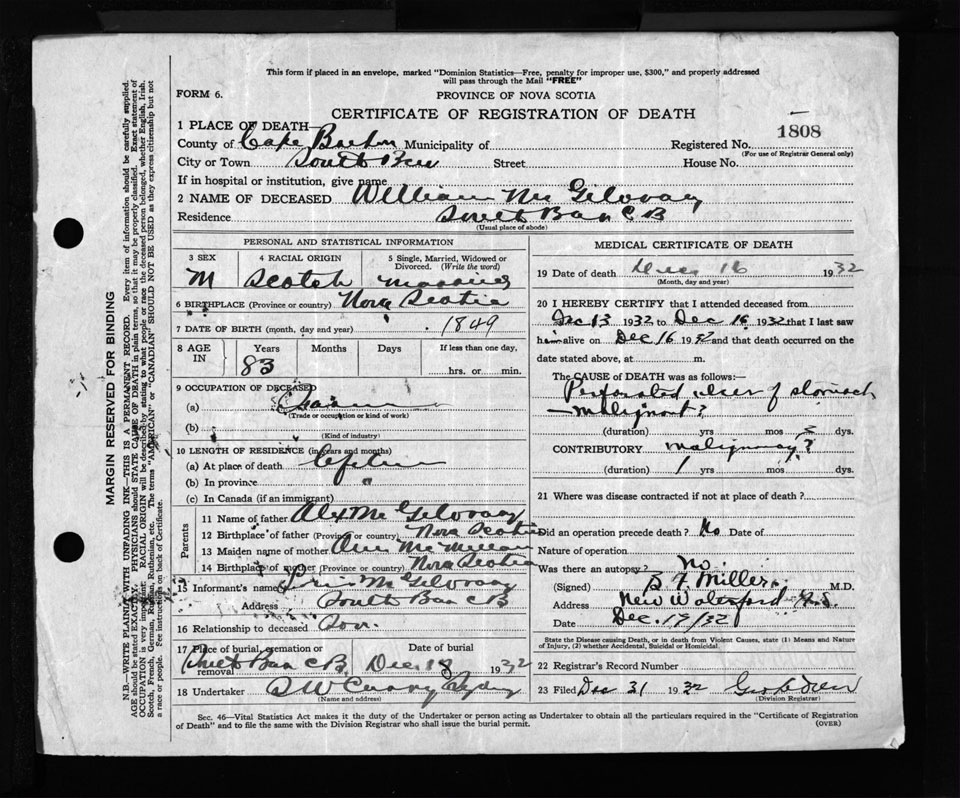 This form if placed in an envelope, marked "Dominion Statistics—Free, penalty for improper use, $300," and properly addressed
will pass through the Mail "FREE"
FORM 6.
PROVINCE OF NOVA SCOTIA
CERTIFICATE OF REGISTRATION OF DEATH
1 PLACE OF DEATH—
County of Cape Breton Municipality of Registered No. 1808
(For use of Registrar General only)
City or Town South Street House No.
If in hospital or institution, give name
2 NAME OF DECEASED William Mc Gilvray
Residence South Bar C B
(Usual place of abode)
PERSONAL AND STATISTICAL INFORMATION
3 SEX 4 RACIAL ORIGIN 5 Single, Married, Widowed or Divorced. (Write the word)
M Scotch married
6 BIRTHPLACE (Province or country) Nova Scotia
7 DATE OF BIRTH (month, day and year) 1849
8 AGE IN Years Months Days If less than one day,
83 hrs. or min.
9 OCCUPATION OF DECEASED
(a)
(Trade or occupation or kind of work)
(b)
(Kind of industry)
10 LENGTH OF RESIDENCE (in years and months)
(a) At place of death
(b) In province
(c) In Canada (if an immigrant)
Parents
11 Name of father Alex Mc Gilvray
12 Birthplace of father (Province or country) Nova Scotia
13 Maiden name of mother Ann McMillan
14 Birthplace of mother (Province or country) Nova Scotia
15 Informant's name Mc Gilvray
Address South Bar C B
16 Relationship to deceased Son.
17 Place of burial, cremation or removal Date of burial
South Bar C B. Dec 18 1932
18 Undertaker Curry Sydney
(Name and address)
MEDICAL CERTIFICATE OF DEATH
19 Date of death Dec 16 1932
(Month, day and year)
20 I HEREBY CERTIFY that I attended deceased from
Dec 13 1932 to Dec 16 1932 that I last saw
him alive on Dec 16 1932 and that death occurred on the
date stated above, at m.
The CAUSE OF DEATH was as follows:—
Perforated ulcer of stomach
— malignant?
(duration) yrs mos dys.
CONTRIBUTORY malignancy?
(duration) 1 yrs mos dys.
21 Where was disease contracted if not at place of death?
Did an operation precede death? No Date of
Nature of operation
Was there an autopsy? No.
(Signed) B F Miller M.D.
Address New Waterford N.S.
Date Dec. 17/32
State the Disease causing Death, or in death from Violent Causes, state (1) Means and Nature
of Injury, (2) whether Accidental, Suicidal or Homicidal.
22 Registrar's Record Number
23 Filed Dec 31 1932 Geo
(Division Registrar)
Sec. 46—Vital Statistics Act makes it the duty of the Undertaker or person acting as Undertaker to obtain all the particulars required in the "Certificate of Registration
of Death" and to file the same with the Division Registrar who shall issue the burial permit. (OVER)
MARGIN RESERVED FOR BINDING
N.B.—WRITE PLAINLY WITH UNFADING INK—THIS IS A PERMANENT RECORD. Every item of information should be carefully supplied.
AGE should be stated EXACTLY. PHYSICIANS should STATE CAUSE OF DEATH in plain terms, so that it may be properly classified. Exact statement of
OCCUPATION is very important. RACIAL ORIGIN will be described by stating to what people or race the deceased person belonged, whether English, Irish,
Scotch, French, German, Russian, Ruthenian, etc. The terms "AMERICAN" or "CANADIAN" SHOULD NOT BE USED as they express citizenship but not
a race or people. Fee instructions on back of Certificate.